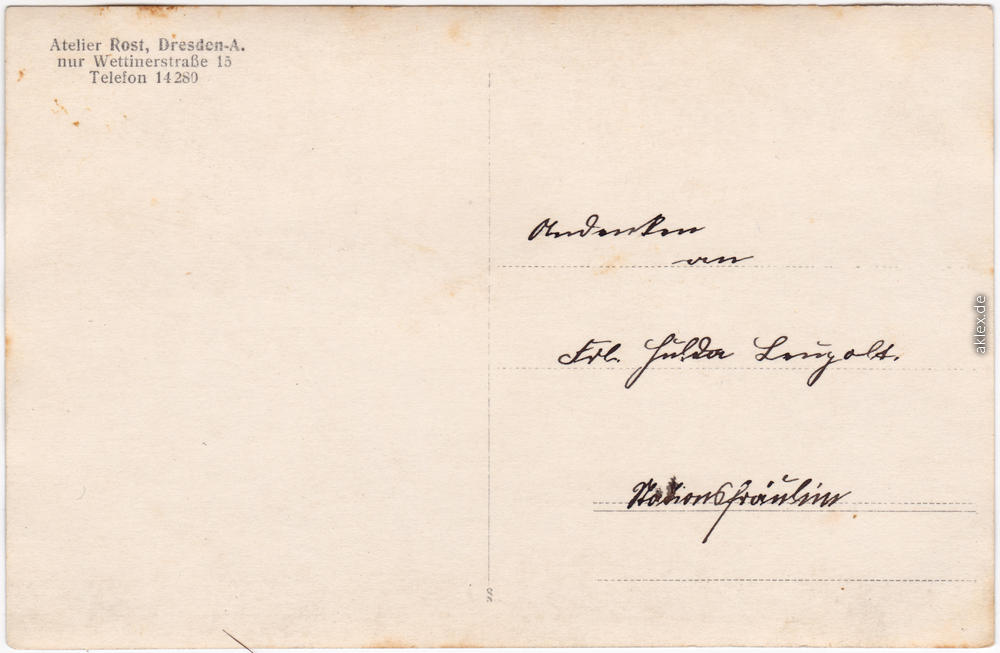 Atelier Rost, Dresden-A.
nur Wettinerstraße 15
Telefon 14280
Andenken
an
Frl. Hulda Leupolt.
Stationsfräulein
aklex.de